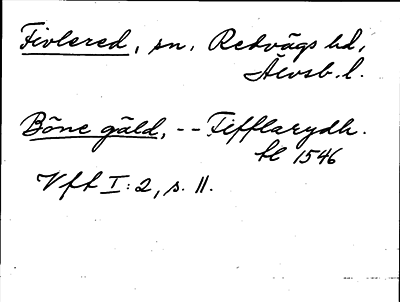 Fivlered, sn, Redvägs hd,
Älvsb. l.
Böne gäld, -- Fifflarydh.
hl 1546
Vft I:2, s. 11.